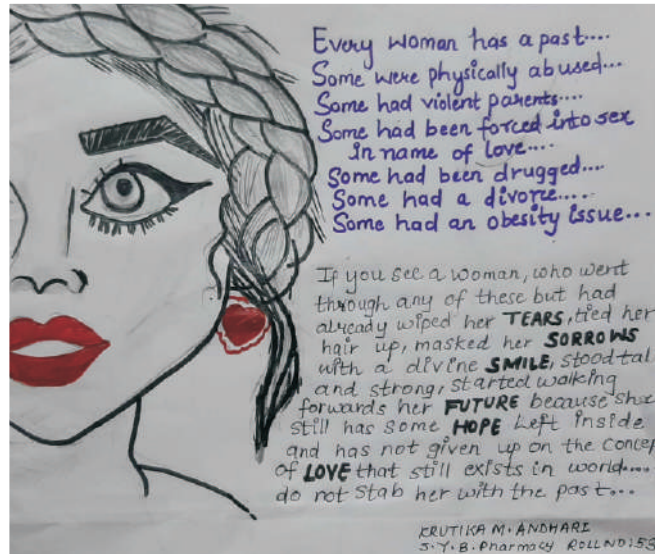 Every woman has a past....
Some were physically abused...
Some had violent parents....
Some had been forced into sex
in name of love....
Some had been drugged....
Some had a divorce.....
Some had an obesity issue...
If you see a woman, who went
through any of these but had
already wiped her TEARS, tied her
hair up, masked her SORROWS
with a divine SMILE, stood tal
and strong, started walking
forwards her FUTURE because she
still has some HOPE left inside
and has not given up on the concep
of LOVE that still exists in world.....
do not stab her with the past...
KRUTIKA M. ANDHARE
S.Y.B. Pharmacy ROLL NO: 53